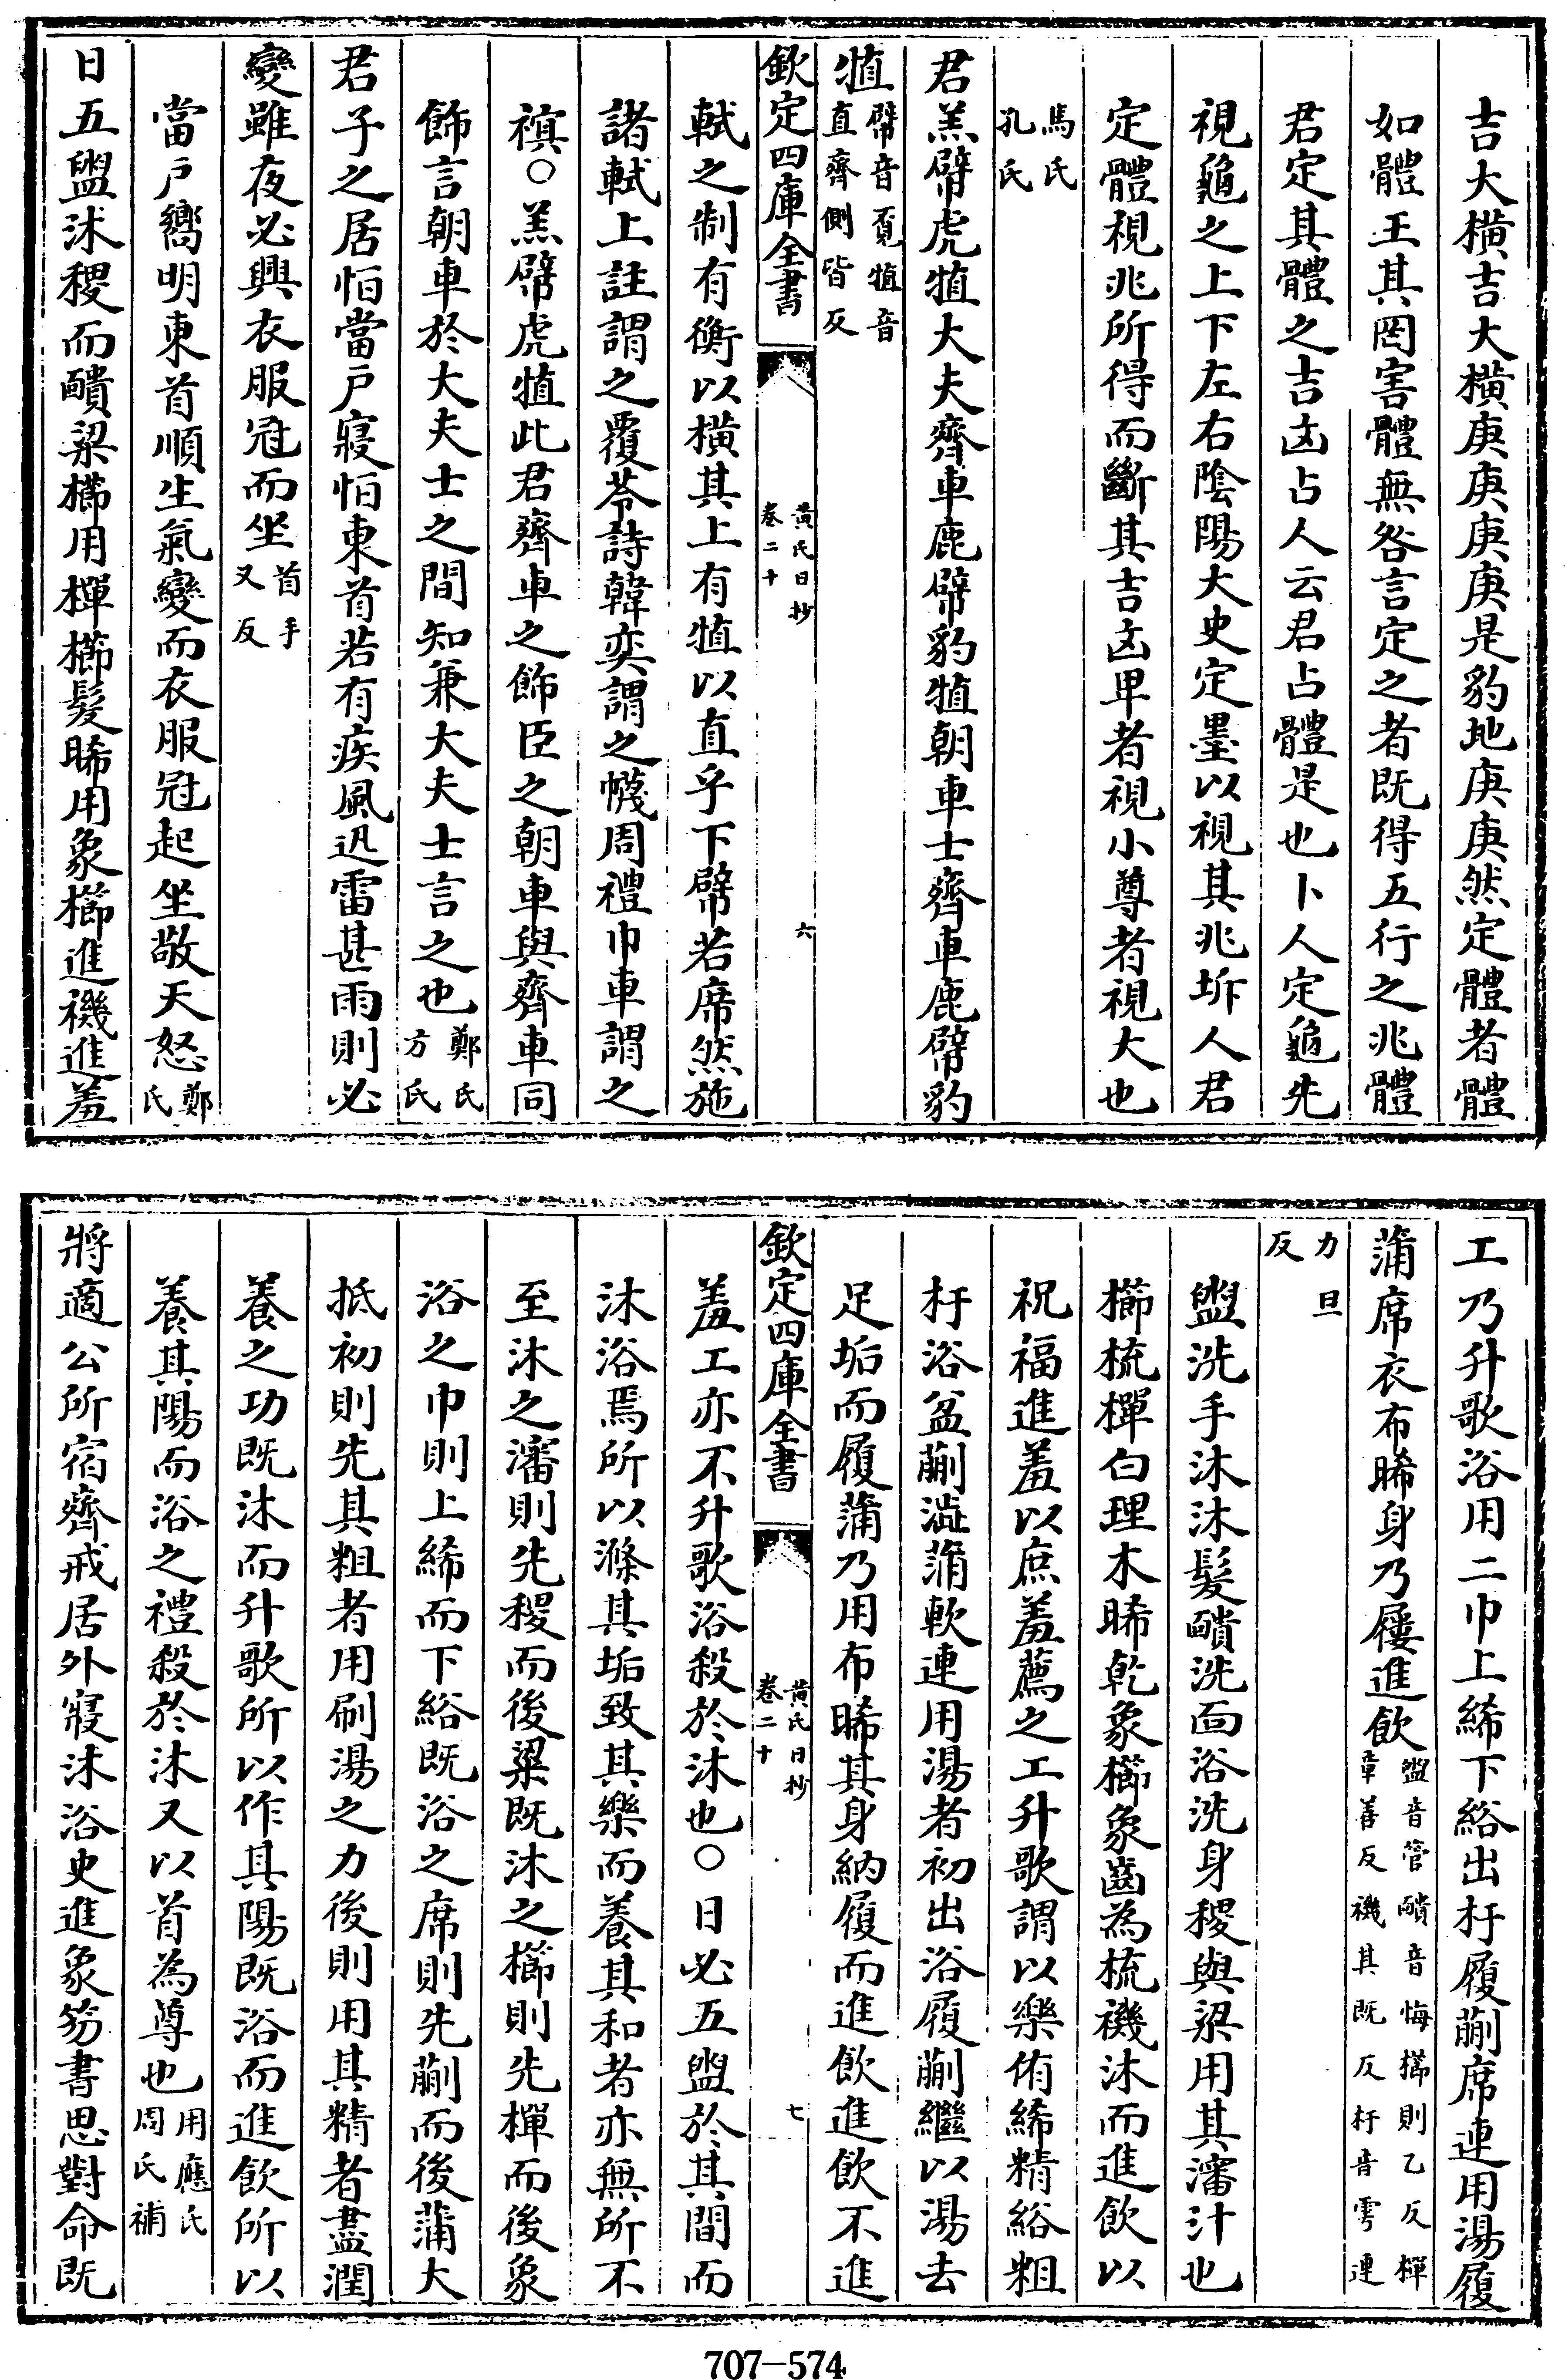 吉大橫吉大橫庚庚庚庚是豹地庚庚然定體者體
如體王其罔害體無咎言定之者既得五行之兆體
君定其體之吉凶占人云君占體是也卜人定龜先
視龜之上下左右陰陽大史定墨以視其兆坼人君
定體視兆所得而斷其吉凶卑者視小尊者視大也
馬氏
孔氏
君羔幦虎犆大夫齊車鹿幦豹犆朝車士齊車鹿幦豹
犆幦音覔犆音
直齊側皆反
欽定四庫全書
黄氏日抄
卷二十
六
軾之制有衡以橫其上有犆以直乎下幦若席然施
諸軾上註謂之覆苓詩韓奕謂之幭周禮巾車謂之
䄙○羔幦虎犆此君齊車之飾臣之朝車與齊車同
飾言朝車於大夫士之間知兼大夫士言之也鄭氏
方氏
君子之居恒當戶寢恒東首若有疾風迅雷甚雨則必
變雖夜必興衣服冠而坐首手
又反
當戶嚮明東首順生氣變而衣服冠起坐敬天怒鄭
氏
日五盥沐稷而靧粱櫛用樿櫛髮晞用象櫛進禨進羞
工乃升歌浴用二巾上絺下綌出杅履蒯席連用湯履
蒲席衣布晞身乃屨進飲盥音管靧音悔櫛則乙反樿
章善反禨其既反杅音雩連
力旦
反
盥洗手沐沐髮靧洗面浴洗身稷與粱用其瀋汁也
櫛梳樿白理木晞乾象櫛象齒為梳禨沐而進飲以
祝福進羞以庶羞薦之工升歌謂以樂侑絺精綌粗
杅浴盆蒯澁蒲軟連用湯者初出浴履蒯繼以湯去
足垢而履蒲乃用布晞其身納履而進飲進飲不進
欽定四庫全書
黄氏日抄
卷二十
七
羞工亦不升歌浴殺於沐也○日必五盥於其間而
沐浴焉所以滌其垢致其樂而養其和者亦無所不
至沐之瀋則先稷而後粱既沐之櫛則先樿而後象
浴之巾則上絺而下綌既浴之席則先蒯而後蒲大
抵初則先其粗者用刷湯之力後則用其精者盡潤
養之功既沐而升歌所以作其陽既浴而進飲所以
養其陽而浴之禮殺於沐又以首為尊也用應氏
周氏補
將適公所宿齊戒居外寢沐浴史進象笏書思對命既
707-574